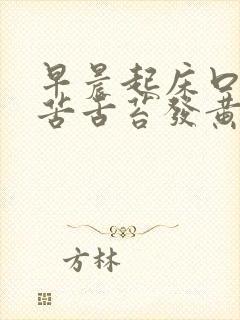 早晨起床口
苦舌苔發黃
方林